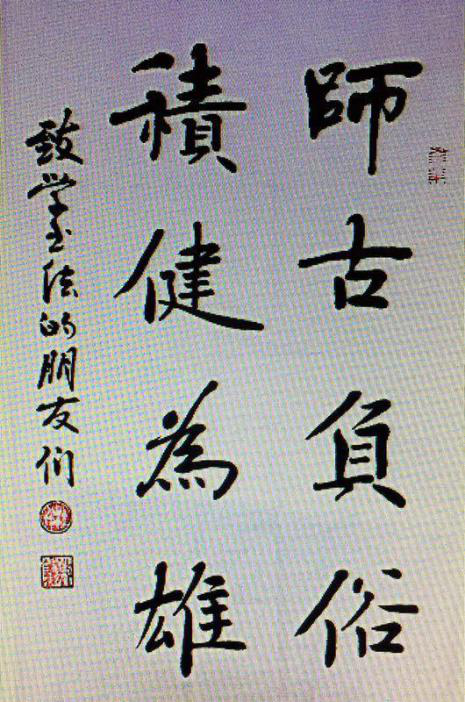 師古負俗
積健為雄
致学书法的朋友们